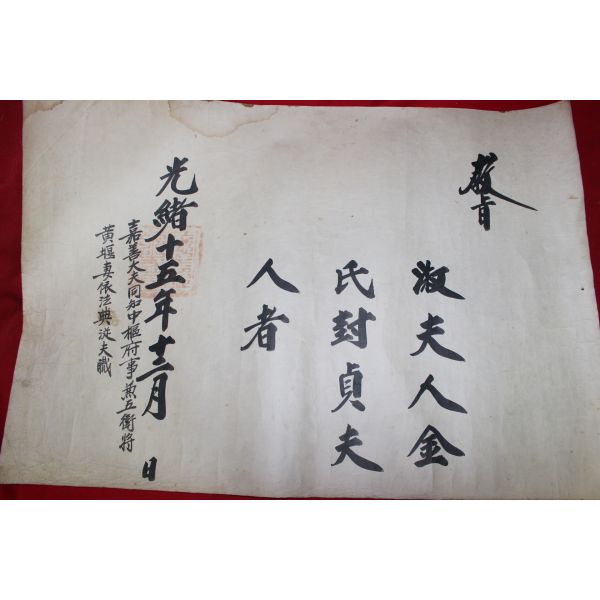 教旨
淑夫人金
氏封貞夫
人者
光緖十五年十二月 日
嘉善大夫同知中樞府事兼五衛將
黃堰妻依法典從夫職